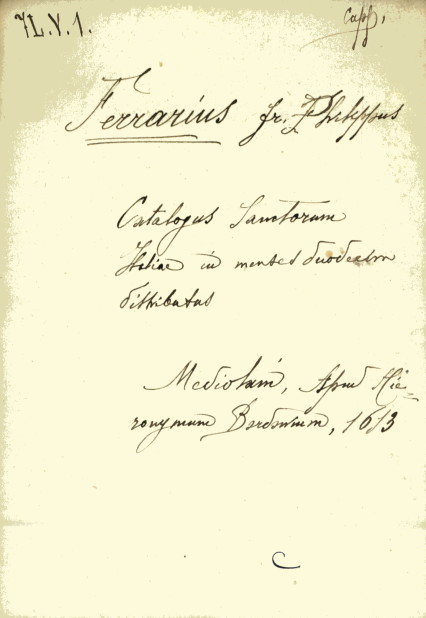 7L.V.1.
Capp.
Ferrarius fr. Philippus
Catalogus Sanctorum
Italiae in menses duodecim
distributus
Mediolani, Apud Hie=
ronymum Bordonium, 1613
C